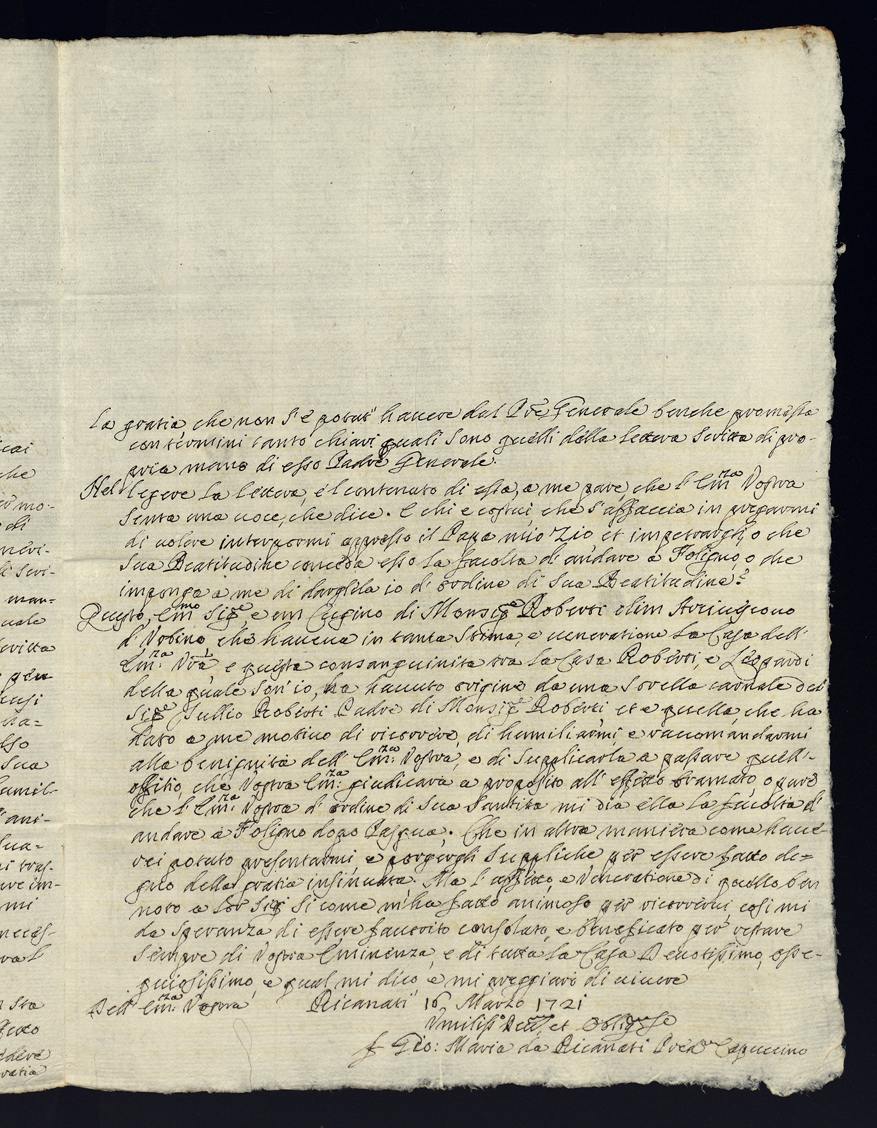 La gratia che non s'è potut' hauere dal Pre Generale benche promessa
con termini tanto chiari quali sono quelli della lettera scritta di pro-
pria mano di esso Padre Generale.
Nel legere la lettera, e'l contenuto di essa, a me pare, che l'Em:za Vostra
senta una uoce, che dice. E chi e costui, che s'affaccia in pregarmi
di uolere interpormi appresso il Papa mio Zio et impetrargli, o che
Sua Beatitudine conceda esso la facolta di andare a Foligno, o che
imponga a me di dargliela io di ordine di Sua Beatitudine?
Questo, Em:mo Sigre, e un Cugino di Monsigre Roberti olim Arciuescouo
d'Vrbino, che haueua in tanta stima, e ueneratione la Casa dell'
Em:za Vra e questa consanguinita tra la Casa Roberti, e Leopardi
della quale son io, ha hauuto origine da una sorella carnale del
Sigre Tullio Roberti Padre di Monsigre Roberti et e quella, che ha
dato a me motiuo di ricorrere, di humiliarmi, e raccomandarmi
alla benignità dell'Em:za Vostra, e di supplicarla a passare quell'-
offitio, che Vostra Em:za giudicarà a proposito all'effetto bramato, o pure
che l'Em:za Vostra d'ordine di Sua Santita mi dia ella la facolta di
andare a Foligno dopo Pasqua. Che in altra maniera come haue-
rei potuto presentarmi, e porgergli suppliche per essere fatto de=
gno della gratia insinuata. Ma l'affetto, e ueneratione di quello ben
noto a lor Sigri si come m'ha fatto animoso per ricorrerui, cosi mi
da speranza di essere fauorito consolato, e beneficato per restare
sempre di Vostra Eminenza, e di tutta la Casa Deuotissimo, osse-
quiosissimo, e qual mi dico, e mi preggiarò di uiuere
Dell'Em:za Vostra Ricanati 16 Marzo 1721
Vmiliss:o et Obligmo
f Gio: Maria da Ricanati Capuccino